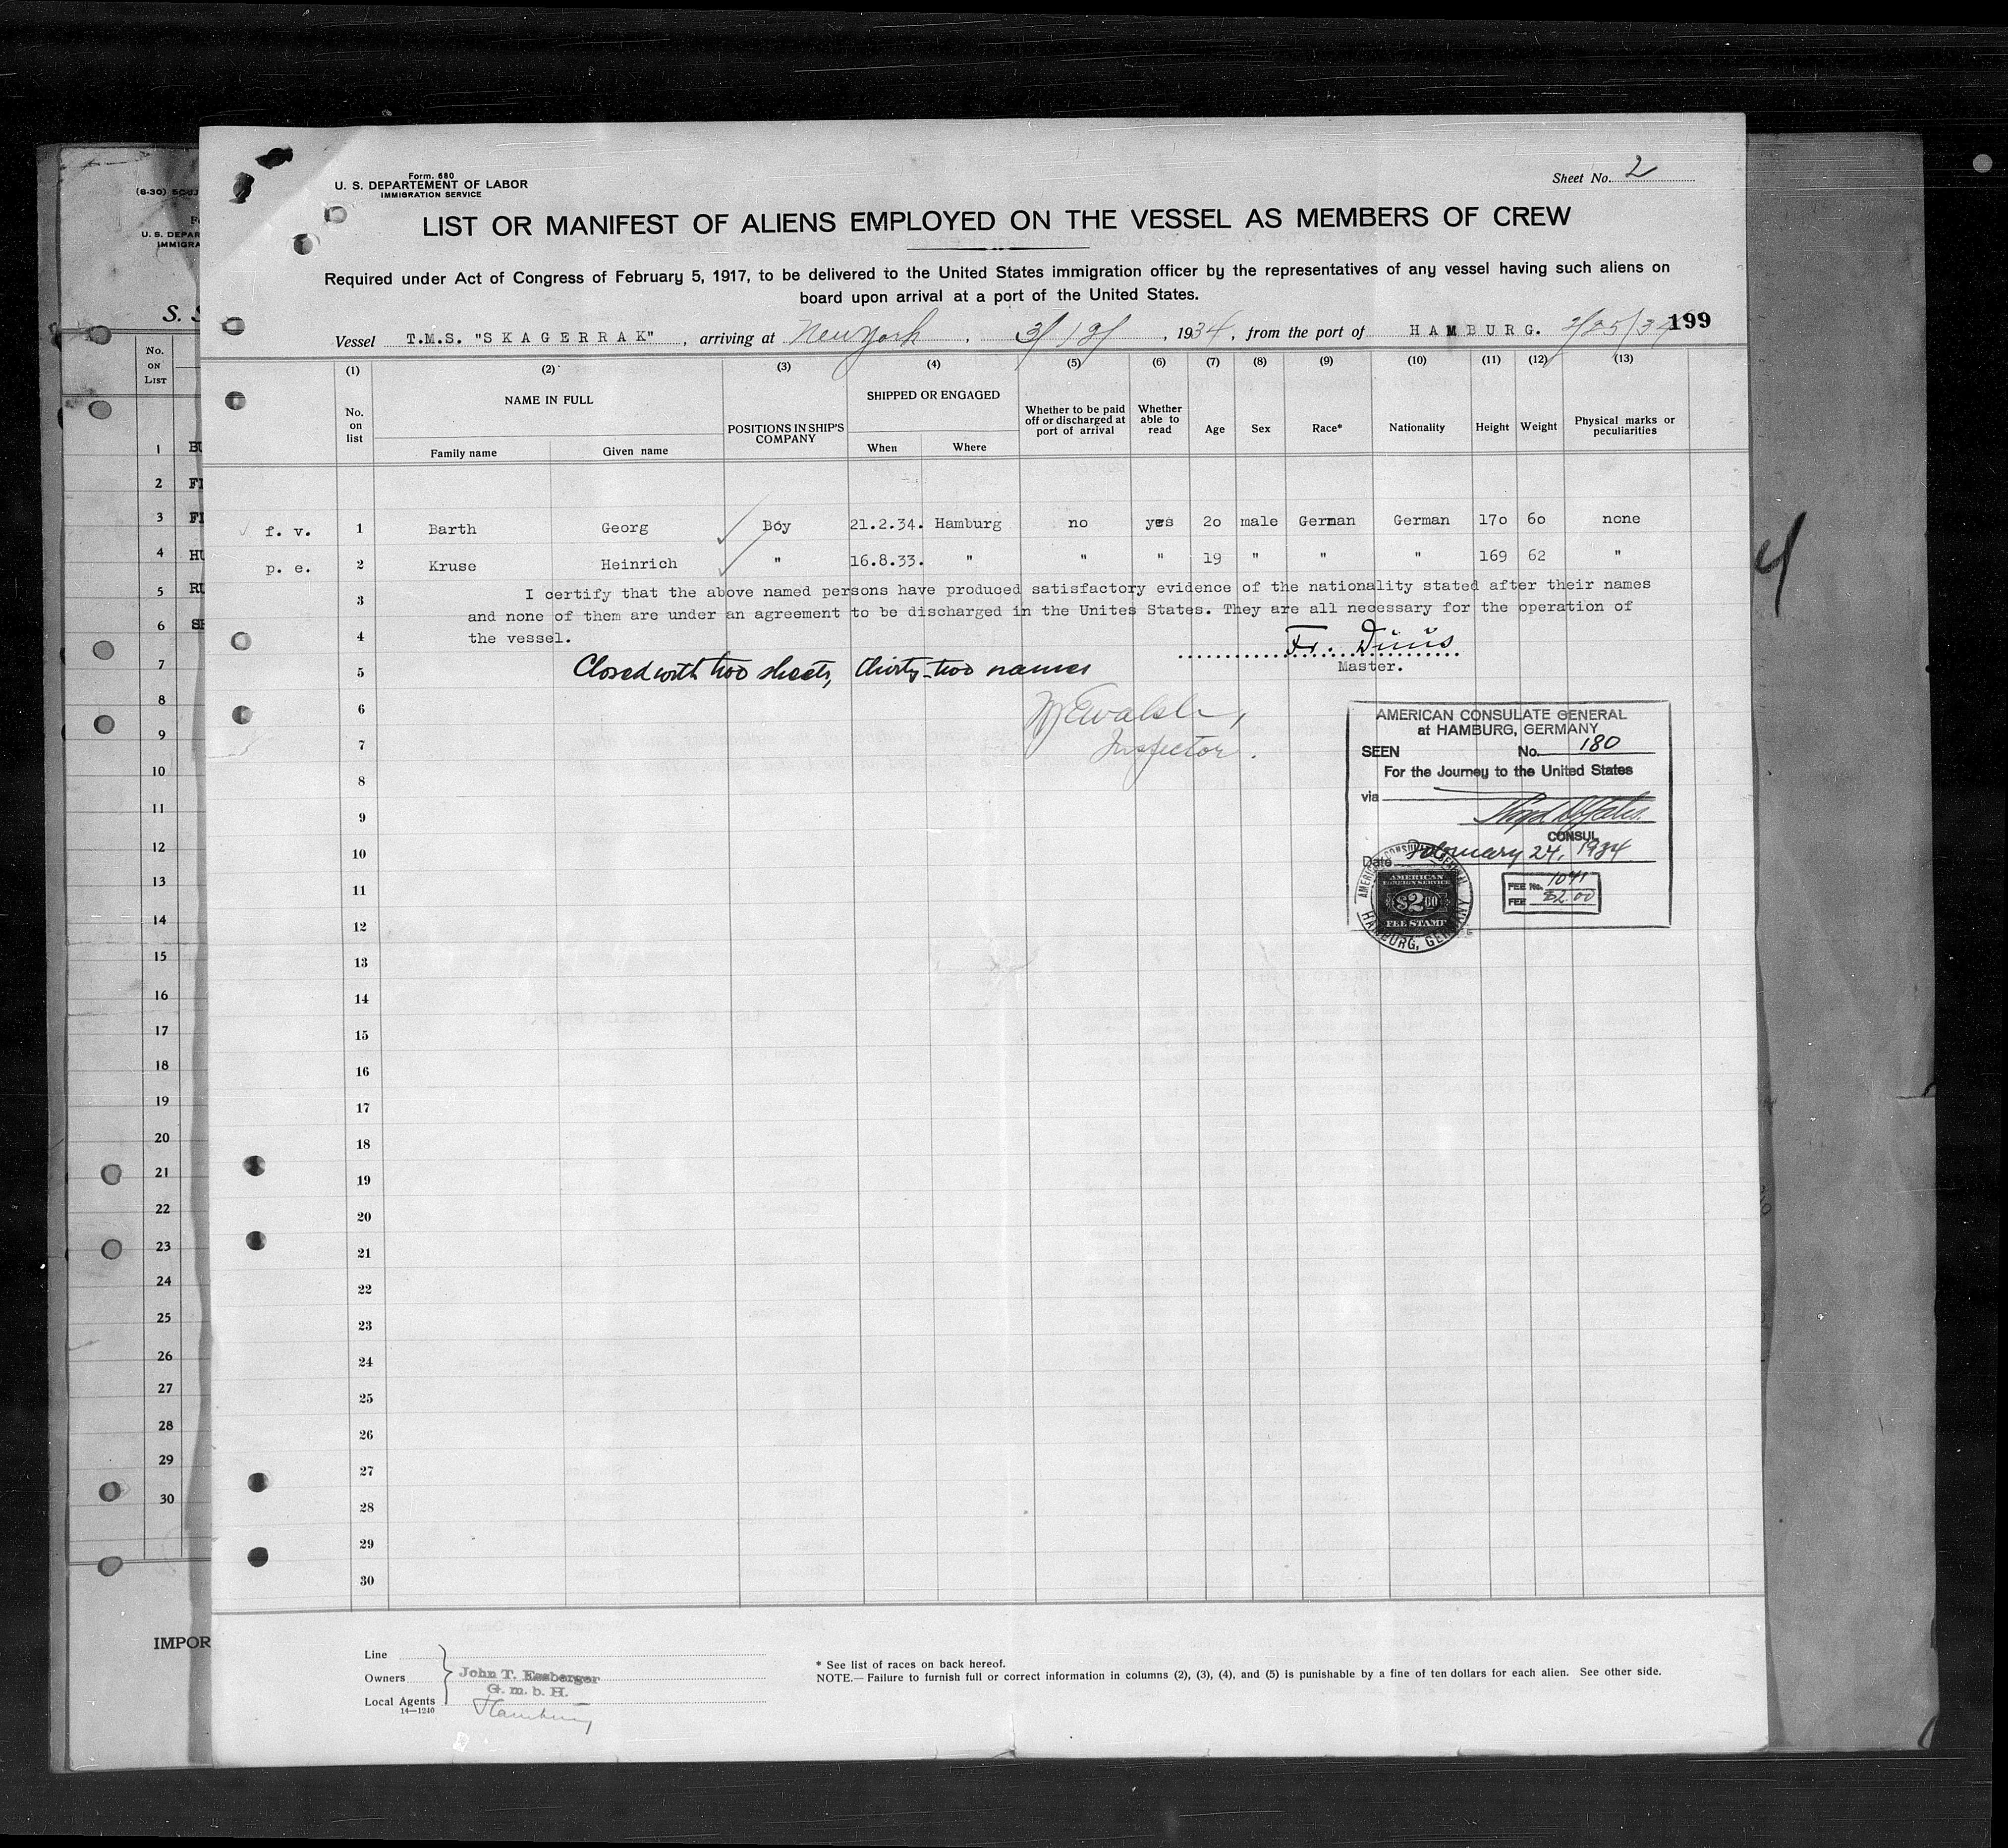 Form. 680
U. S. DEPARTEMENT OF LABOR
IMMIGRATION SERVICE
Sheet No. 2
LIST OR MANIFEST OF ALIENS EMPLOYED ON THE VESSEL AS MEMBERS OF CREW
Required under Act of Congress of February 5, 1917, to be delivered to the United States immigration officer by the representatives of any vessel having such aliens on
board upon arrival at a port of the United States.
Vessel T.M.S. "SKAGERRAK", arriving at New York, 3/12/, 1934, from the port of HAMBURG. 2/25/34 199
(1) (2) (3) (4) (5) (6) (7) (8) (9) (10) (11) (12) (13)
No. on list NAME IN FULL Family name Given name POSITIONS IN SHIP'S COMPANY SHIPPED OR ENGAGED When Where Whether to be paid off or discharged at port of arrival Whether able to read Age Sex Race* Nationality Height Weight Physical marks or peculiarities
f. v. 1 Barth Georg Boy 21.2.34. Hamburg no yes 20 male German German 170 60 none
p. e. 2 Kruse Heinrich " 16.8.33. " " " 19 " " " 169 62 "
3 I certify that the above named persons have produced satisfactory evidence of the nationality stated after their names
and none of them are under an agreement to be discharged in the Unites States. They are all necessary for the operation of
4 the vessel.
Fr.
Master.
5 Closed with two sheets, thirty-two names
6
7 Inspector.
8
9
10
11
12
13
14
15
16
17
18
19
20
21
22
23
24
25
26
27
28
29
30
AMERICAN CONSULATE GENERAL
at HAMBURG, GERMANY
SEEN No. 180
For the Journey to the United States
via
CONSUL
Date February 24, 1934
FEE No. 1041
FEE $2.00
AMERICAN
FOREIGN SERVICE
$2.00
FEE STAMP
HAMBURG, GERMANY
Line
Owners John T. Essberger
G. m. b. H.
Local Agents Hamburg
14—1240
* See list of races on back hereof.
NOTE.— Failure to furnish full or correct information in columns (2), (3), (4), and (5) is punishable by a fine of ten dollars for each alien. See other side.
(6-30)
U. S. DEPAR
IMMIGRA
S. S
No.
on
List
1
2
3
4
5
6
7
8
9
10
11
12
13
14
15
16
17
18
19
20
21
22
23
24
25
26
27
28
29
30
IMPOR
4